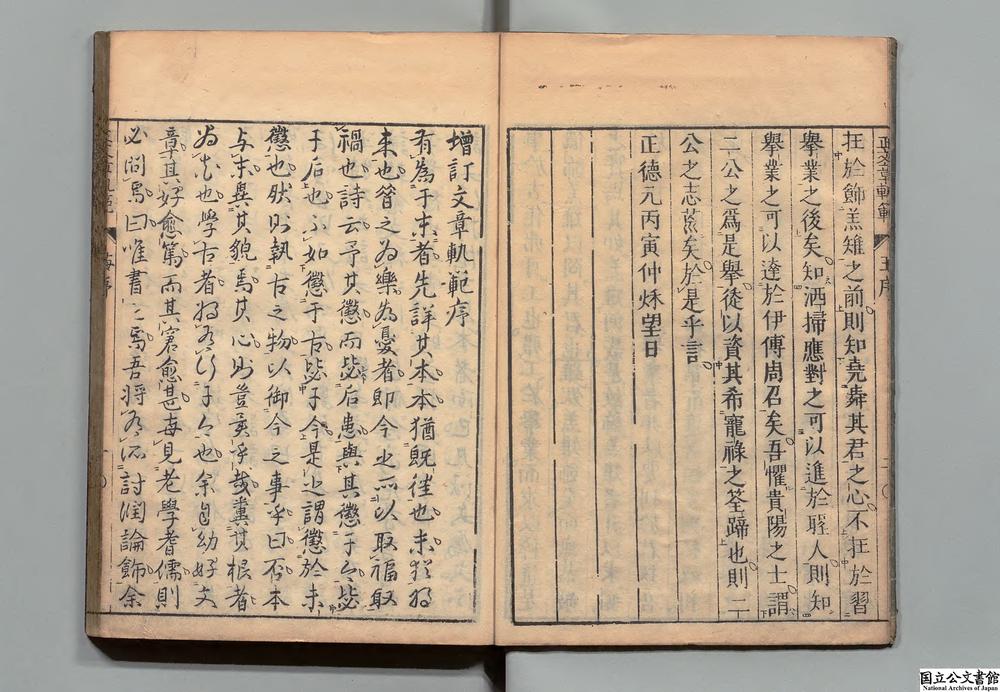 正文章軌範
王序
枉於飾羔雉之前則知堯舜其君之心不枉於習
舉業之後矣知洒掃應對之可以進於聖人則知
舉業之可以達於伊傅周召矣吾懼貴陽之士謂
二公之爲是舉徒以資其希寵祿之筌蹄也則二
公之志荒矣於是乎言
正德元丙寅仲秌望日
增訂文章軌範序
有為于末者先詳其本本猶既徃也末猶将
来也昝之為樂為憂者即今之所以取福取
禍也詩云予其懲而毖后患與其懲于今毖
于后也不如懲于古毖于今是之謂懲於未
懲也然則執古之物以御今之事乎曰否本
与末異其貌焉其心則豈異乎哉糞其根者
為花也學古者将為行于今也余自幼好文
章其好愈篤而其窘愈甚每見老學耆儒則
必問焉曰唯書之焉吾将為所討潤論飾余
国立公文書館
National Archives of Japan